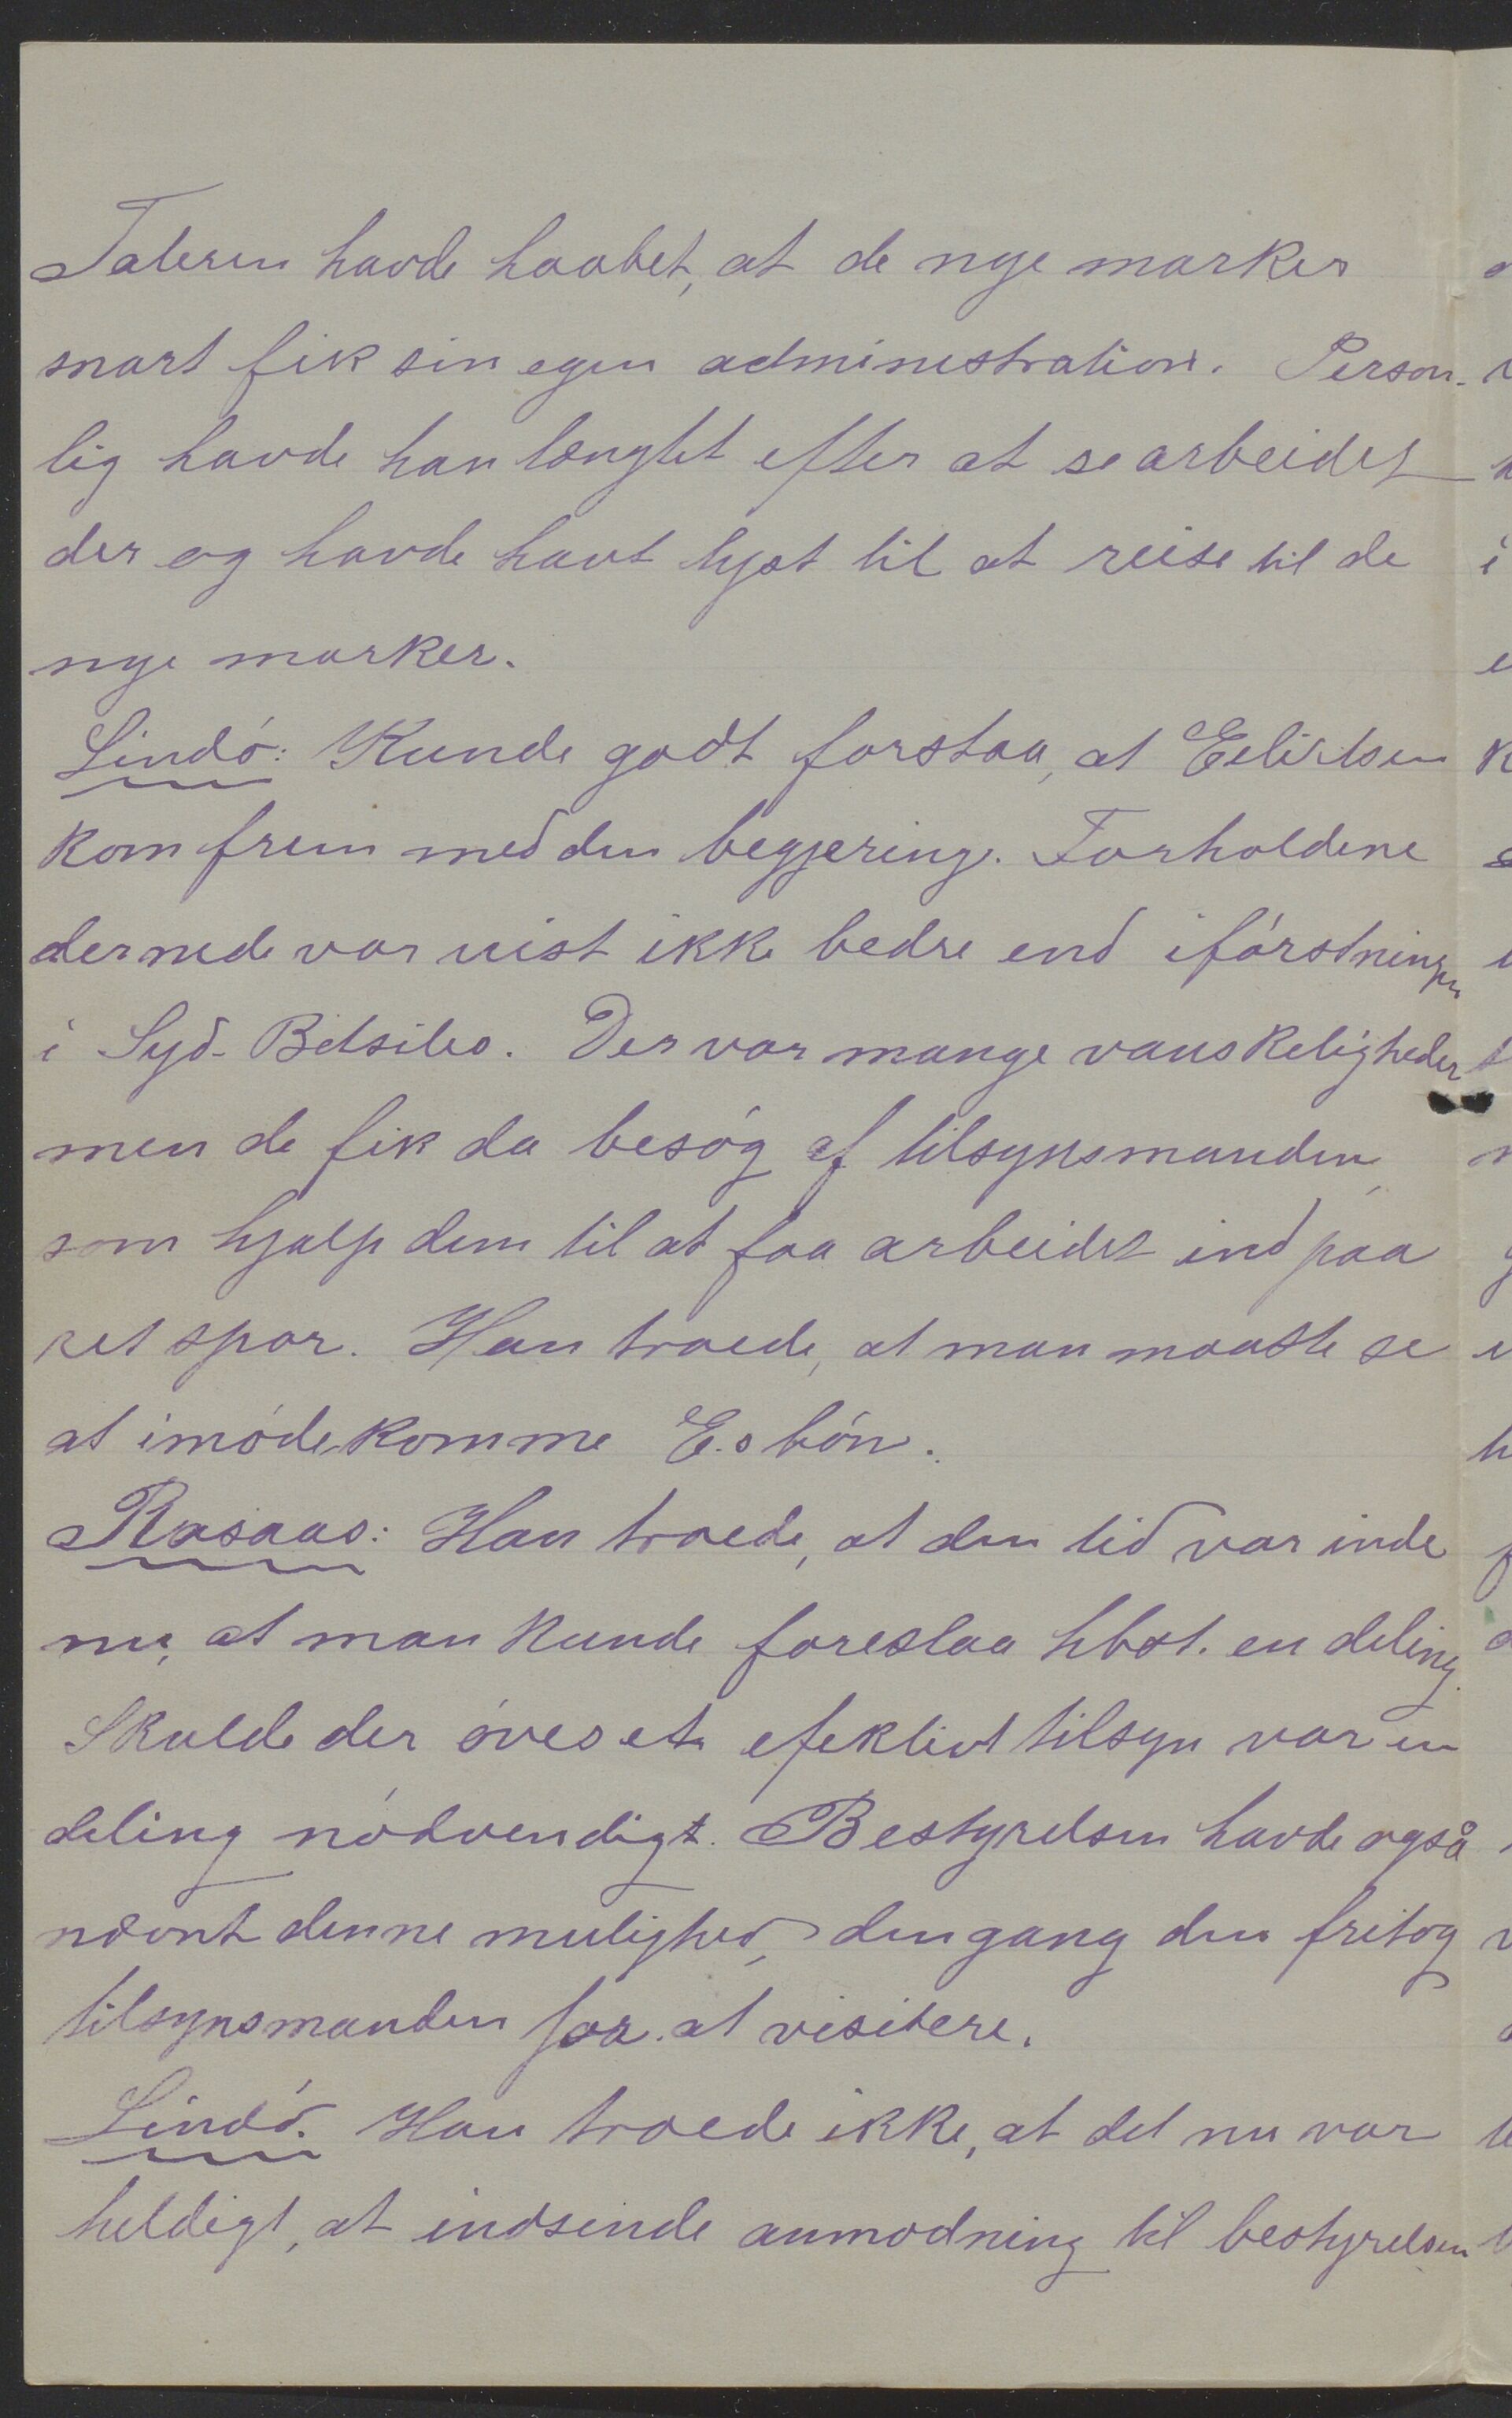 Taleren havde haabet, at de nye marker
snart fik sin egen administration. Person-
lig havde han længtet efter at se arbeidet
der og havde havt lyst til at reise til de
nye marker.
Lindö: Kunde godt forstaa, at Eilertsen
kom frem med den begjering. Forholdene
dernede var vist ikke bedre end iförstningen
i Syd-Betsileo. Der var mange vanskeligheder
men de fik da besög af tilsynsmanden,
som hjalp dem til at faa arbeidet ind paa
ret spor. Han troede, at man maatte se
at imödekomme E.s bön.
Rosaas: Han troede, at den tid var inde
nu, at man kunde foreslaa hbst. en deling.
Skulde der öves et efektivt tilsyn var en
deling nödvendigt. Bestyrelsen havde også
nævnt denne mulighed, dengang den fritog
tilsynsmanden for at visitere.
Lindö. Han troede ikke, at det nu var
heldigt, at indsende anmodning til bestyrelsen